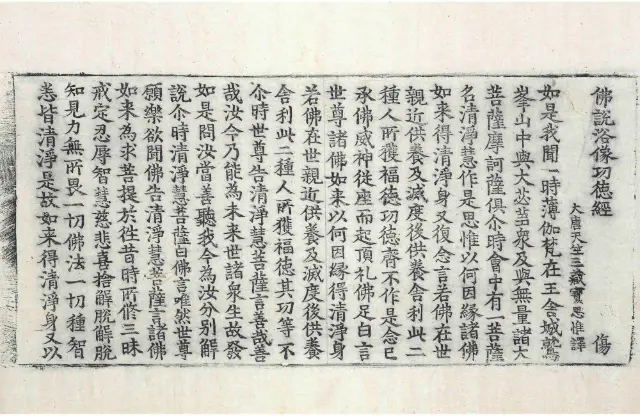 佛說浴像功德經　傷
大唐天竺三藏寶思惟譯
如是我聞一時薄伽梵在王舍城鷲
峯山中與大苾芻衆及與無量諸大
菩薩摩訶薩俱尒時會中有一菩薩
名清淨慧作是思惟以何因緣諸佛
如来得清淨身又復念言若佛在世
親近供養及滅度後供養舍利此二
種人所獲福德功德齊不作是念已
承佛威神從座而起頂礼佛足白言
世尊諸佛如来以何因緣得清淨身
若佛在世親近供養及滅度後供養
舍利此二種人所獲福德其功等不
尒時世尊告清淨慧菩薩言善哉善
哉汝今乃能為未来世諸衆生故發
如是問汝當善聽我今為汝分別解
說尒時清淨慧菩薩白佛言唯然世尊
願樂欲聞佛告清淨慧菩薩言諸佛
如来為求菩提於往昔時所修三昧
戒定忍辱智慧慈悲喜捨解脫解脫
知見力無所畏一切佛法一切種智
悉皆清淨是故如来得清淨身又以